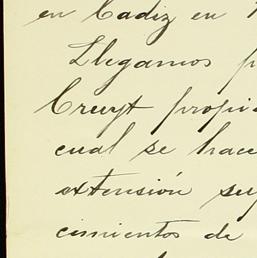 en Cadiz en
Llegamos p
Cruyt propi
cual se hace
extensión sup
cimientos de